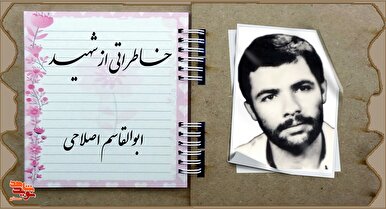 خاطراتی از شهید
ابوالقاسم اصلاحی